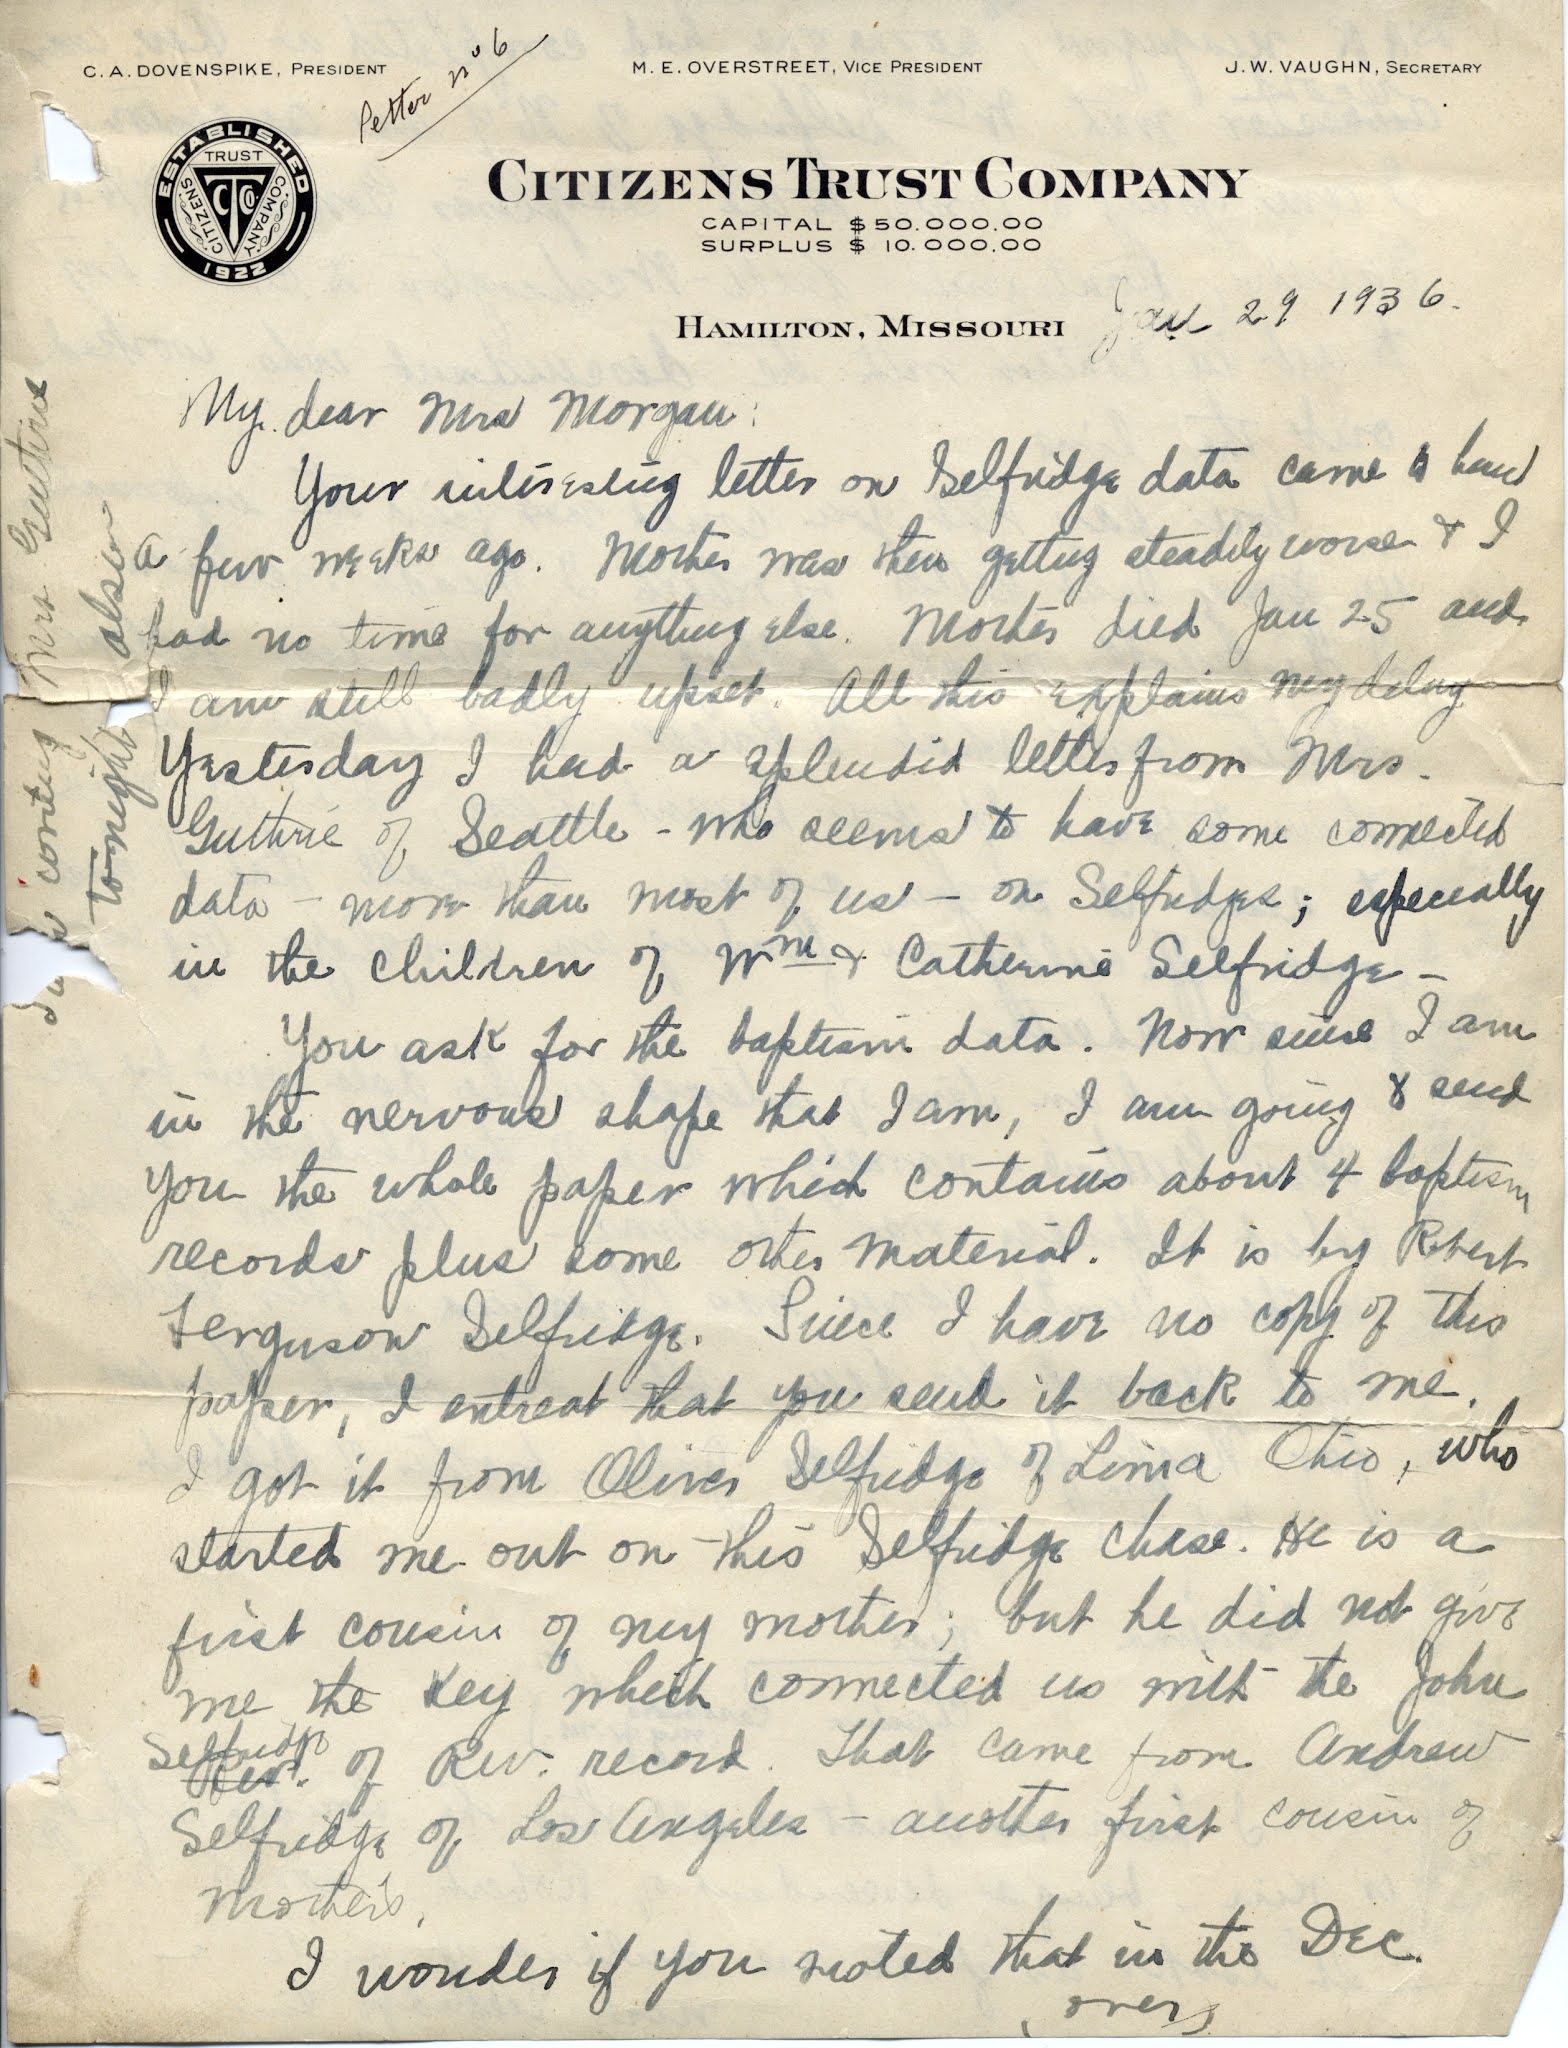 C. A. DOVENSPIKE, PRESIDENT
M. E. OVERSTREET, VICE PRESIDENT
J. W. VAUGHN, SECRETARY
Letter no 6
ESTABLISHED 1922
CITIZENS TRUST COMPANY
CTCo
CITIZENS TRUST COMPANY
CAPITAL $50.000.00
SURPLUS $ 10.000.00
HAMILTON, MISSOURI
Jan 29 1936.
My dear Mrs Morgan:
Your interesting letter on Selfridge data came to hand
a few weeks ago. Mother was then getting steadily worse & I
had no time for anything else. Mother died Jan 25 and
I am still badly upset. All this explains my delay
Yesterday I had a splendid letter from Mrs.
Guthrie of Seattle - who seems to have some connected
data - more than most of us - on Selfridges; especially
in the children of Wm & Catherine Selfridge -
You ask for the baptism data. Now since I am
in the nervous shape that I am, I am going to send
you the whole paper which contains about 4 baptism
records plus some other material. It is by Robert
Ferguson Selfridge. Since I have no copy of this
paper, I entreat that you send it back to me.
I got it from Oliver Selfridge of Lima Ohio, who
started me out on this Selfridge chase. He is a
first cousin of my mother; but he did not give
me the key which connected us with the John
Selfridge of Rev. record. That came from Andrew
Selfridge of Los Angeles - another first cousin of
mother's.
I wonder if you noted that in the Dec.
(over)
writing Mrs Guthrie
tonight also